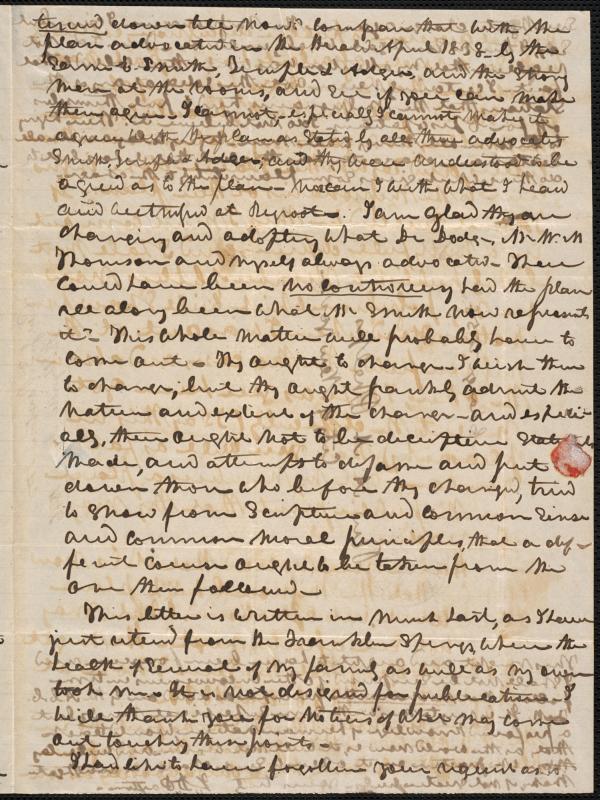 down till now. Compare that with the
plan advocated in the Herald April 1838 by the
same E. Smith, Temple & Adger, and the strong
men at the rooms, and see if you can make
them agree. I cannot - especially I cannot make it
agree with the plan as stated by all these advocates
Smith, Temple & Adger, and they were understood to be
agreed as to the plan - with what I heard
and witnessed at Beyroot -. I am glad they are
changing and adopting what Dr. Dodge, Mr. W. M
Thomson and myself always advocated - There
could have been no controversy had the plan
all along been what Mr. Smith now represents
it - This whole matter will probably have to
come out - They ought to change - I wish them
to change; but they ought frankly admit the
nature and extent of the change - and especi-
ally, there ought not to be deceptive statements
made, and attempts to defame and put
down those who before they changed, tried
to show from Scripture and common sense
and common moral principles, that a dif-
ferent course ought to be taken from the
one then followed -
This letter is written in much haste, as I have
just returned from the Franklin Springs, where the
health of several of my family as well as my own
took me. It is not designed for publication - I
will thank you for notices of what may come
out touching these points -
I had like to have forgotten your request as to